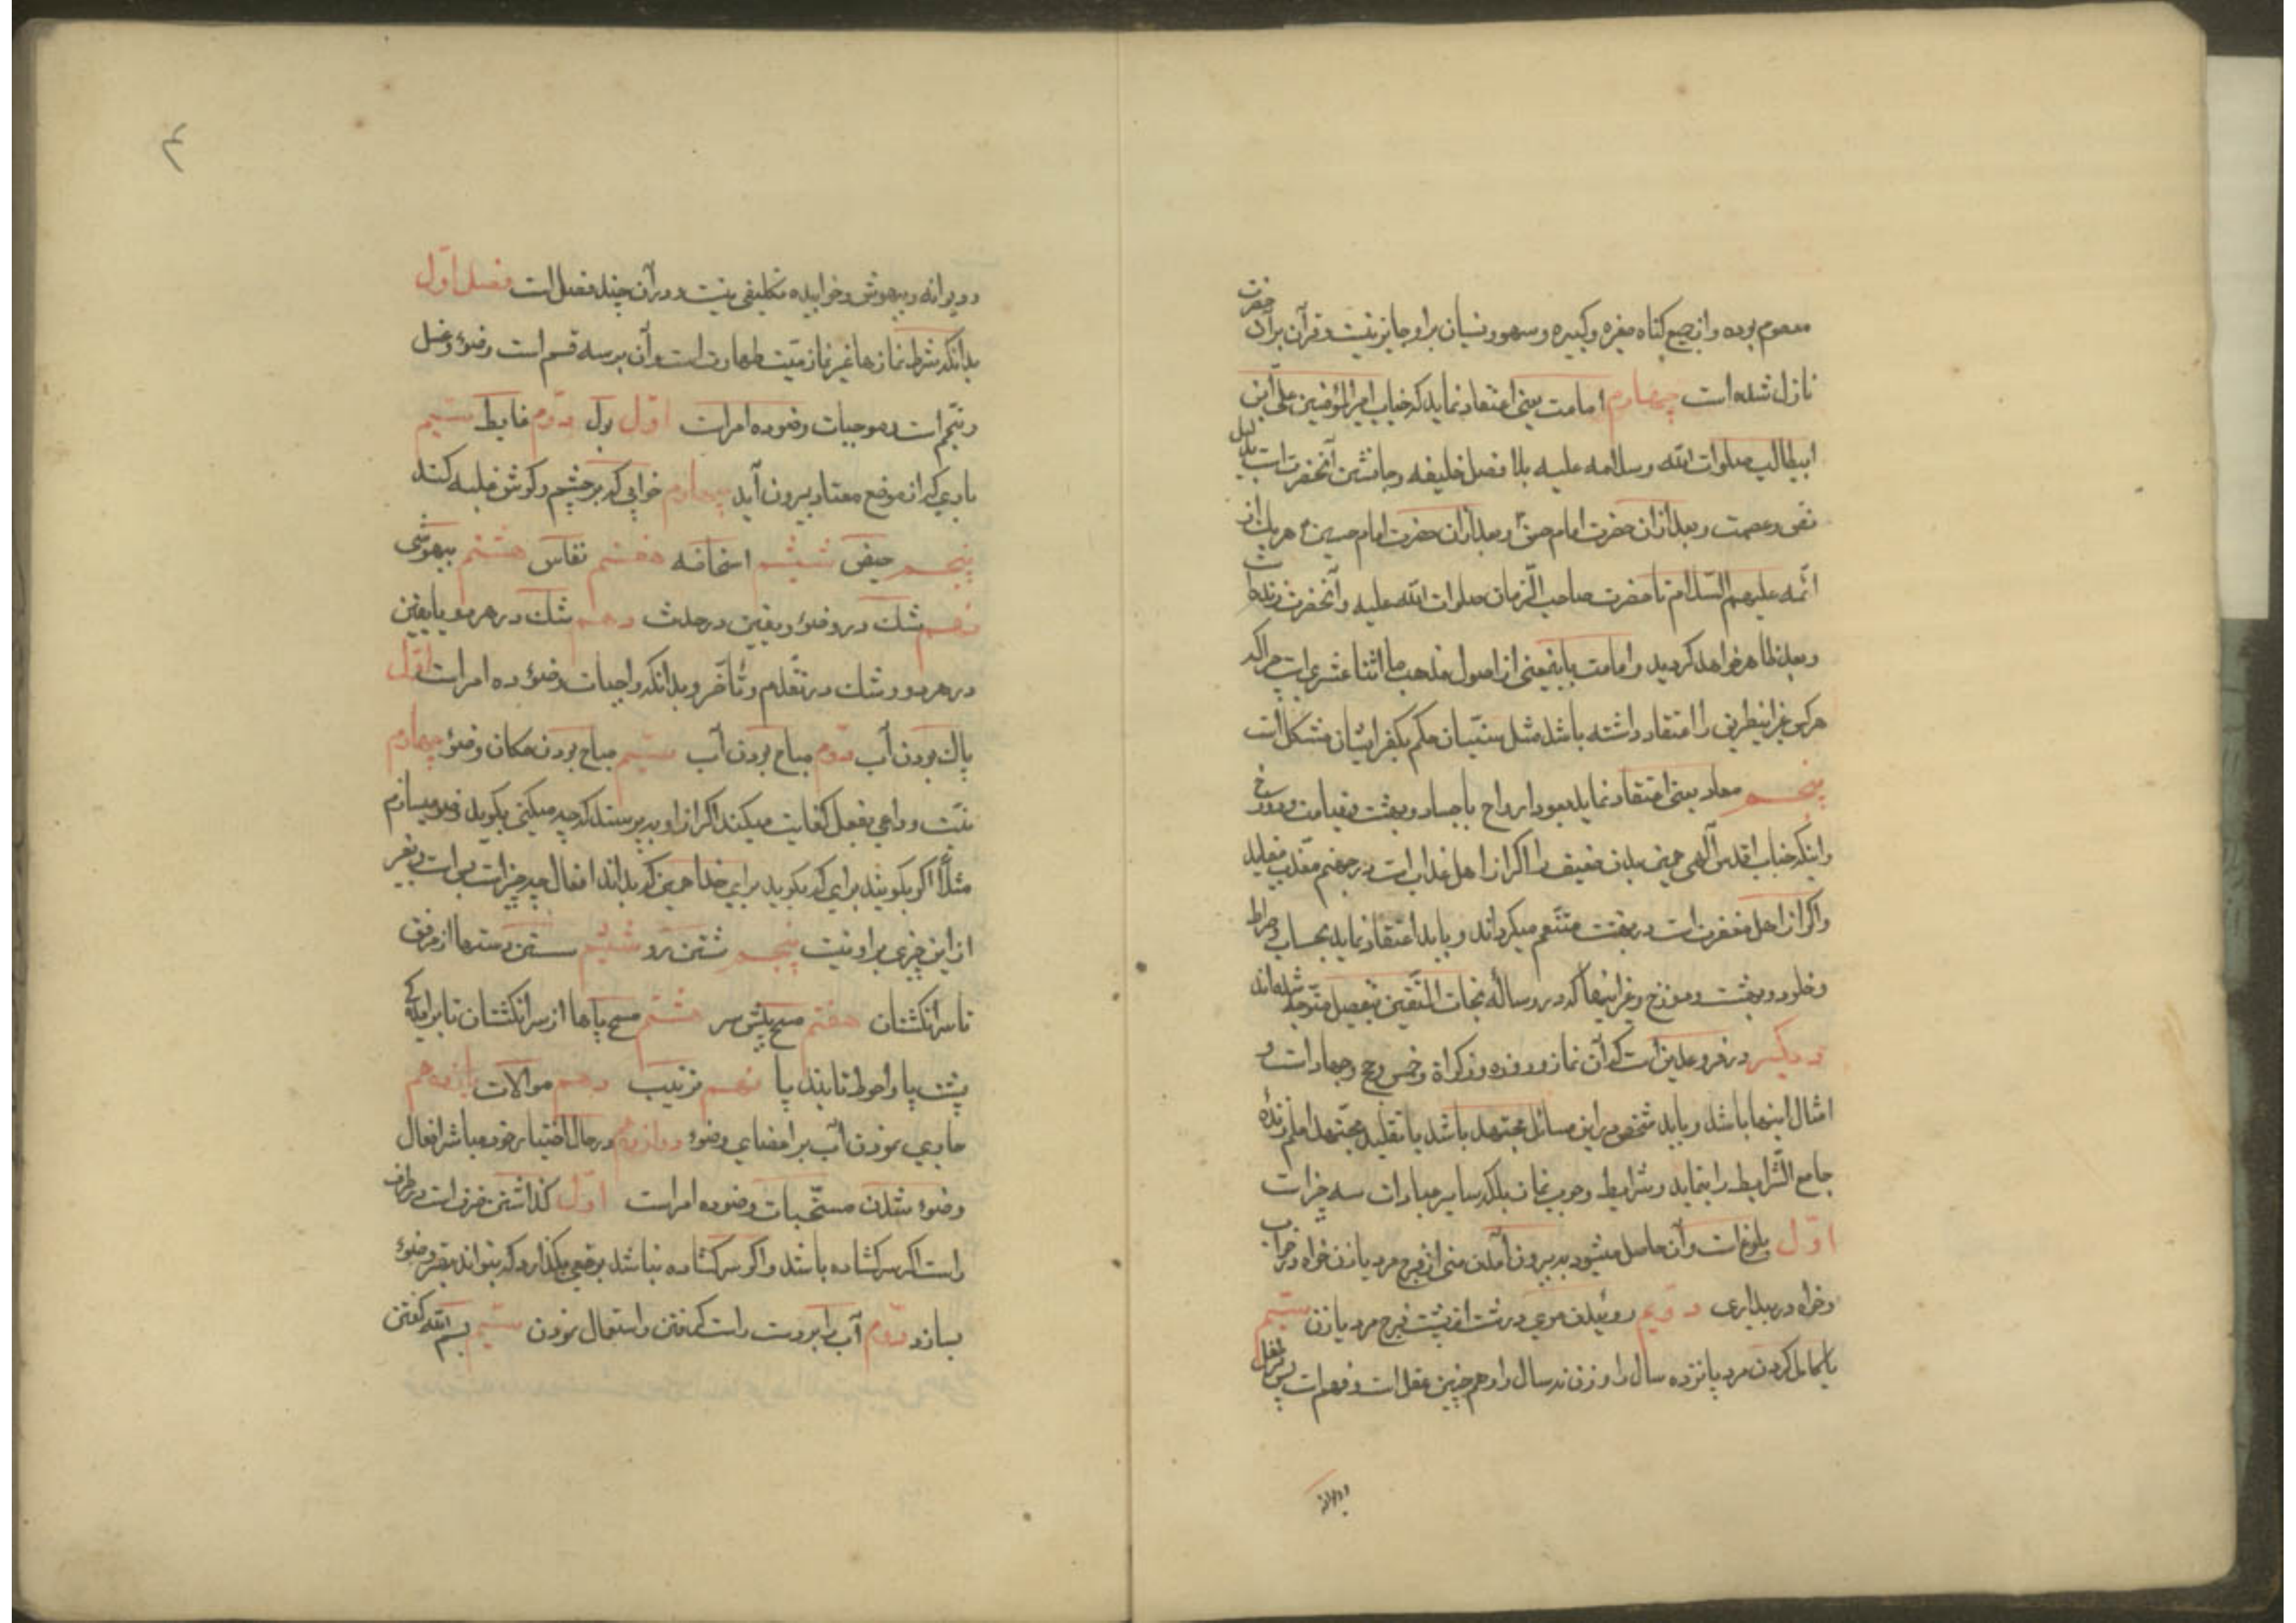 معصوم بوده و از جمیع گناه صغیره و کبیره و سهو و نسیان بر او جایز نیست و قرآن بر آن حضرت
نازل شده است چهارم امامت یعنی اعتقاد نماید که جناب امیرالمؤمنین علی ابن
ابیطالب صلوات الله و سلامه علیه بلا فصل خلیفه و جانشین آنحضرت است بدلیل
نص و عصمت و بعد از آن حضرت امام حسن و بعد از آن حضرت امام حسین هر یک از
ائمه علیهم السّلام تا حضرت صاحب الزّمان صلوات الله علیه و آنحضرت زنده است
و بعد ظاهر خواهد گردید و امامت باینمعنی از اصول مذهب ما اثنا عشری است چرا که
هر کس غیر اینطریق را اعتقاد داشته باشد مثل سنّیان حکم بکفر ایشان مشکل است
پنجم معاد یعنی اعتقاد نماید بعود ارواح باجساد و بهشت و قیامت و دوزخ
و اینکه جناب اقدس آلهی همین بدن ضعیف را اگر از اهل عذاب است در جهنم معذّب مینماید
و اگر از اهل مغفرت است در بهشت متنّعم میگرداند و باید اعتقاد نماید بحساب و صراط
و خلود و بهشت و دوزخ و غیر اینها که در رساله نجات المتّقین بتفصیل متوجه شده‌اند
دیگر در فروع دین است که آن نماز و روزه و زکواة و خمس و حج و جهاد است و
امثال اینها باشد و باید شخص در این مسائل مجتهد باشد یا تقلید مجتهد اعلم زندهٔ
جامع الشّرایط را بنماید و شرایط وجوب نماز بلکه سایر عبادات سه چیز است
اوّل بلوغ است و آن حاصل میشود به بیرون آمدن منی از فرج مرد یا زن خواه در خواب
و خواه در بیداری دویم روئیدن موی درشت از پشت فرج مرد یا زن سیّم
باکمال کردن مرد پانزده سال را و زن نه سال را و همچنین عقل است و فهم است پس بر طفل
و دیوانه
و دیوانه و بیهوش و خوابیده تکلیفی نیست و در آن چند فصل است فصل اوّل
بدانکه شرط نمازها غیر نماز میّت طهارت است و آن بر سه قسم است وضوء و غسل
و تیمّم است و موجبات وضو ده امر است اوّل بول دوّم غایط سیّم
بادی که از موضع معتاد بیرون آید چهارم خوابی که بر چشم و گوش غلبه کند
پنجم حیض ششم استحاضه هفتم نفاس هشتم بیهوشی
نهم شک در وضوء و یقین در حدث دهم شک در هر دو یا یقین
در هر دو و شک در تقدّم و تأخّر و بدانکه واجبات وضوء ده امر است اوّل
پاک بودن آب دوّم مباح بودن آب سیّم مباح بودن مکان وضوء چهارم
نیّت و داعی بفعل کفایت میکند اگر از او بپرسند که چه میکنی بگوید وضو میسازم
مثلاً اگر بگویند برای که بگوید برای خدا همین که بداند افعال چه چیز است بس است و بغیر
از این چیزی بر او نیست پنجم شستن رو ششم شستن دستها از مرفق
تا سر انگشتان هفتم مسح پیش سر هشتم مسح پاها از سر انگشتان تا برآمدگی
پشت پا و احوط تا بند پا نهم ترتیب دهم موالات یازدهم
جاری نمودن آب بر اعضای وضوء دوازدهم در حال اختیار خود مباشر افعال
وضوء شدن مستحّبات وضو ده امر است اوّل گذاشتن ظرف است در طرف
راست اگر سر گشاده باشد و اگر سر گشاده نباشد بوضعی بگذارد که بتواند بقدر وضوء
بسازد دوّم آب را بدست راست گرفتن و استعمال نمودن سیّم بسم الله گفتن